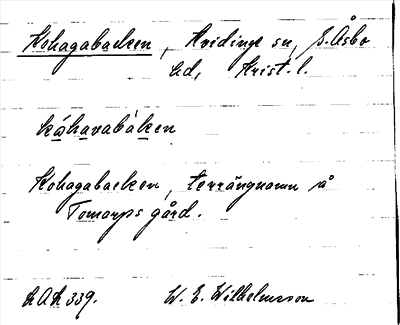 Kohagabacken, Kvidinge sn, S. Åsbo
hd, Krist. l.
kåhavabåken
Kohagabacken, terrängnamn å
Tomarps gård.
LAL 339. W. E. Wilhelmsson